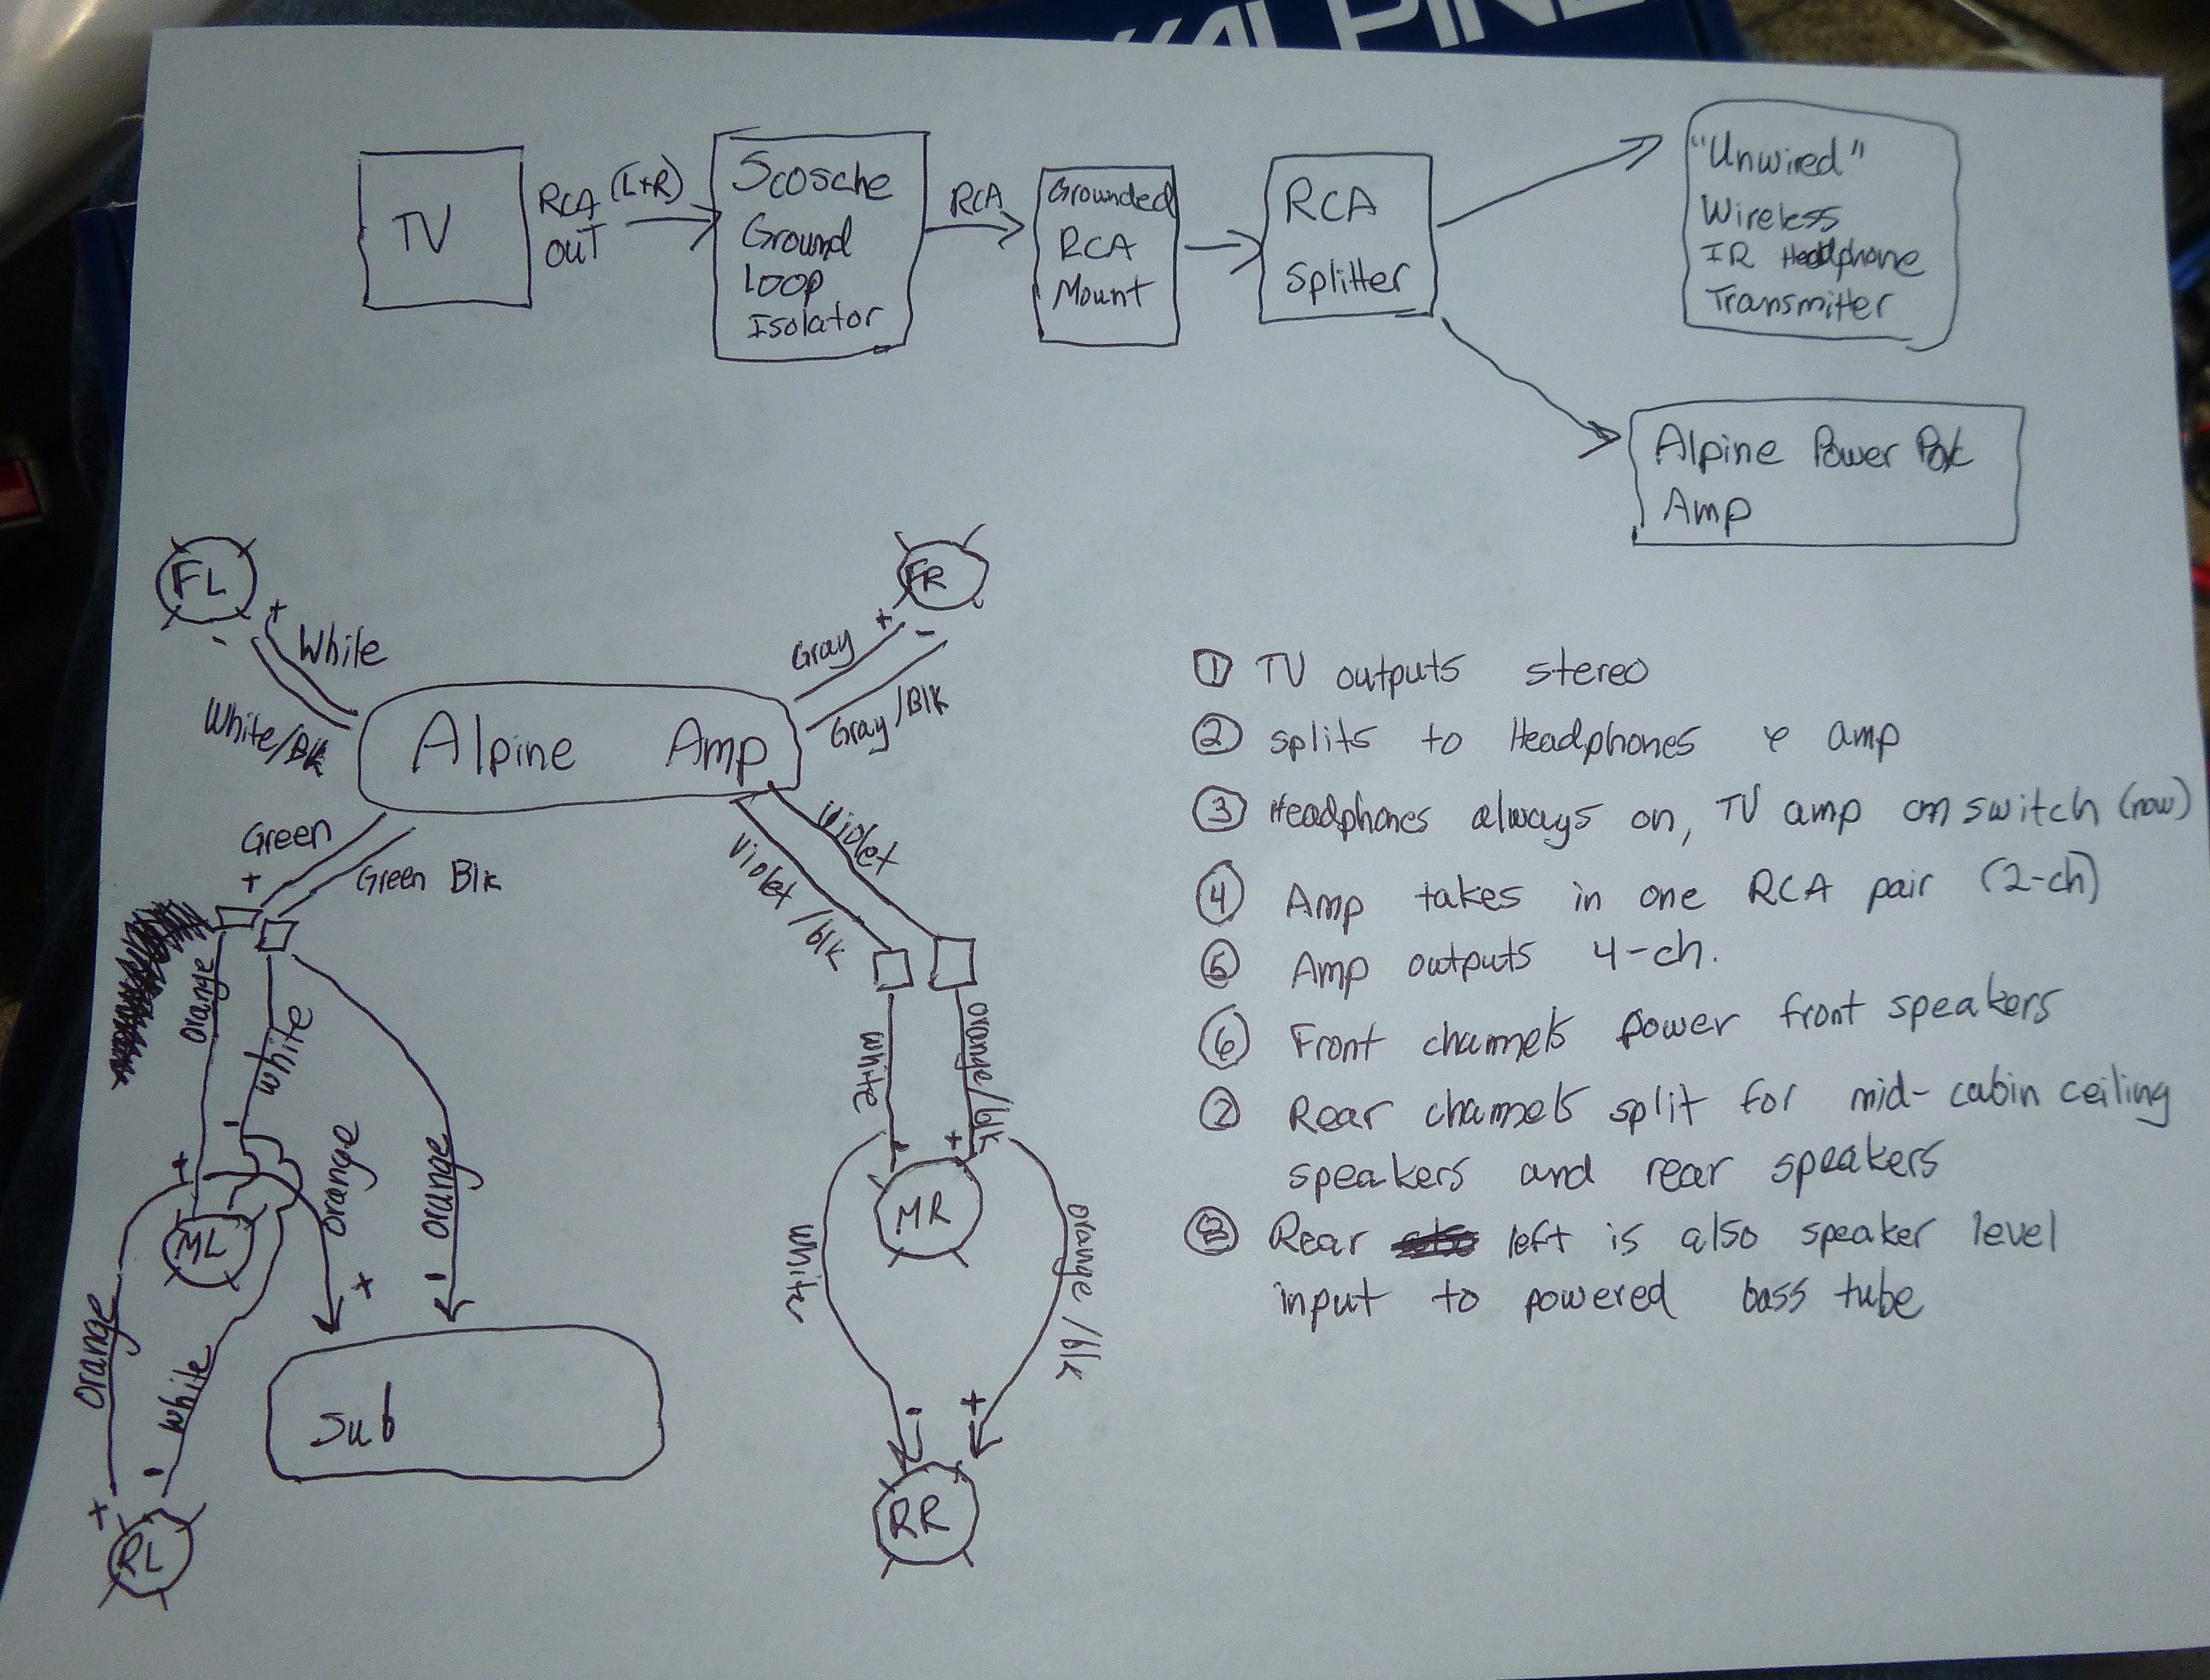 ALPINE
TV
RCA (L+R)
OUT
Scosche
Ground
Loop
Isolator
RCA
Grounded
RCA
Mount
RCA
Splitter
"Unwired"
Wireless
IR Headphone
Transmitter
Alpine Power Pak
Amp
FL
+
-
White
White/Blk
FR
+
-
Gray
Gray/Blk
Alpine Amp
Green
+
Green Blk
Violet
Violet/blk
orange
white
-
+
orange
orange
-
+
ML
orange
white
+
-
RL
Sub
white
orange/blk
-
+
MR
white
orange/blk
-
+
RR
① TV outputs stereo
② splits to Headphones & amp
③ Headphones always on, TV amp on switch (now)
④ Amp takes in one RCA pair (2-ch)
⑤ Amp outputs 4-ch.
⑥ Front channels power front speakers
⑦ Rear channels split for mid-cabin ceiling
speakers and rear speakers
⑧ Rear left is also speaker level
input to powered bass tube